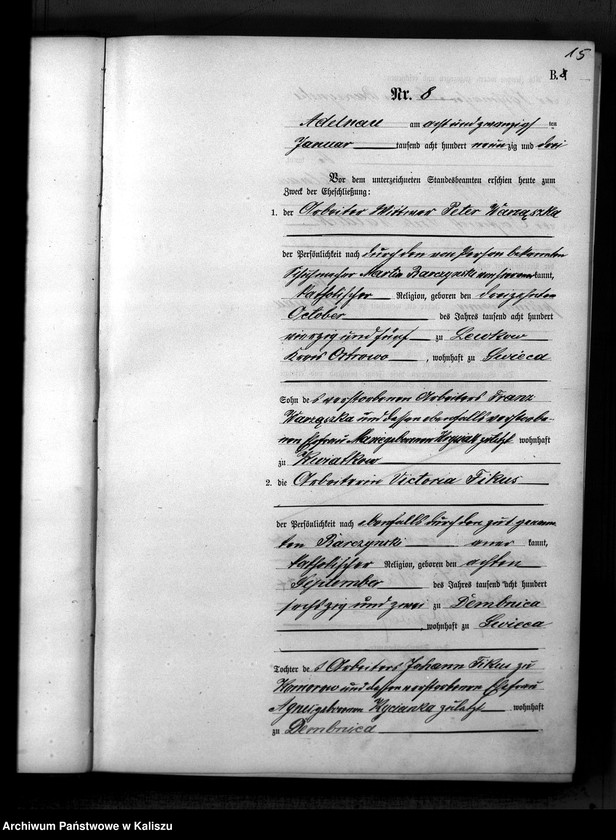 15
B.
Nr. 8
Adelnau am acht und zwanzigsten
Januar tausend acht hundert neunzig und drei
Vor dem unterzeichneten Standesbeamten erschien heute zum
Zweck der Eheschließung:
1. der Arbeiter Wittwer Peter Warząszka
der Persönlichkeit nach durch den von Person bekannten
Martin Barczynski kannt,
katholischer Religion, geboren den dreizehnten
October des Jahres tausend acht hundert
vierzig und fünf zu Lewkow
Kreis Ostrowo, wohnhaft zu Swieca
Sohn des verstorbenen Arbeiters Franz
Warząszka und dessen ebenfalls verstorbe-
nen Ehefrau Marie geborenen zuletzt wohnhaft
zu Kwiatkow
2. die Arbeiterin Victoria Fikus
der Persönlichkeit nach ebenfalls durch den genann-
ten Barczynski aner kannt,
katholischer Religion, geboren den achten
September des Jahres tausend acht hundert
sechszig und zwei zu Dembnica
, wohnhaft zu Swieca
Tochter des Arbeiters Johann Fikus zu
und dessen verstorbenen Ehefrau
Agnes geborenen zuletzt wohnhaft
zu Dembnica
Archiwum Państwowe w Kaliszu